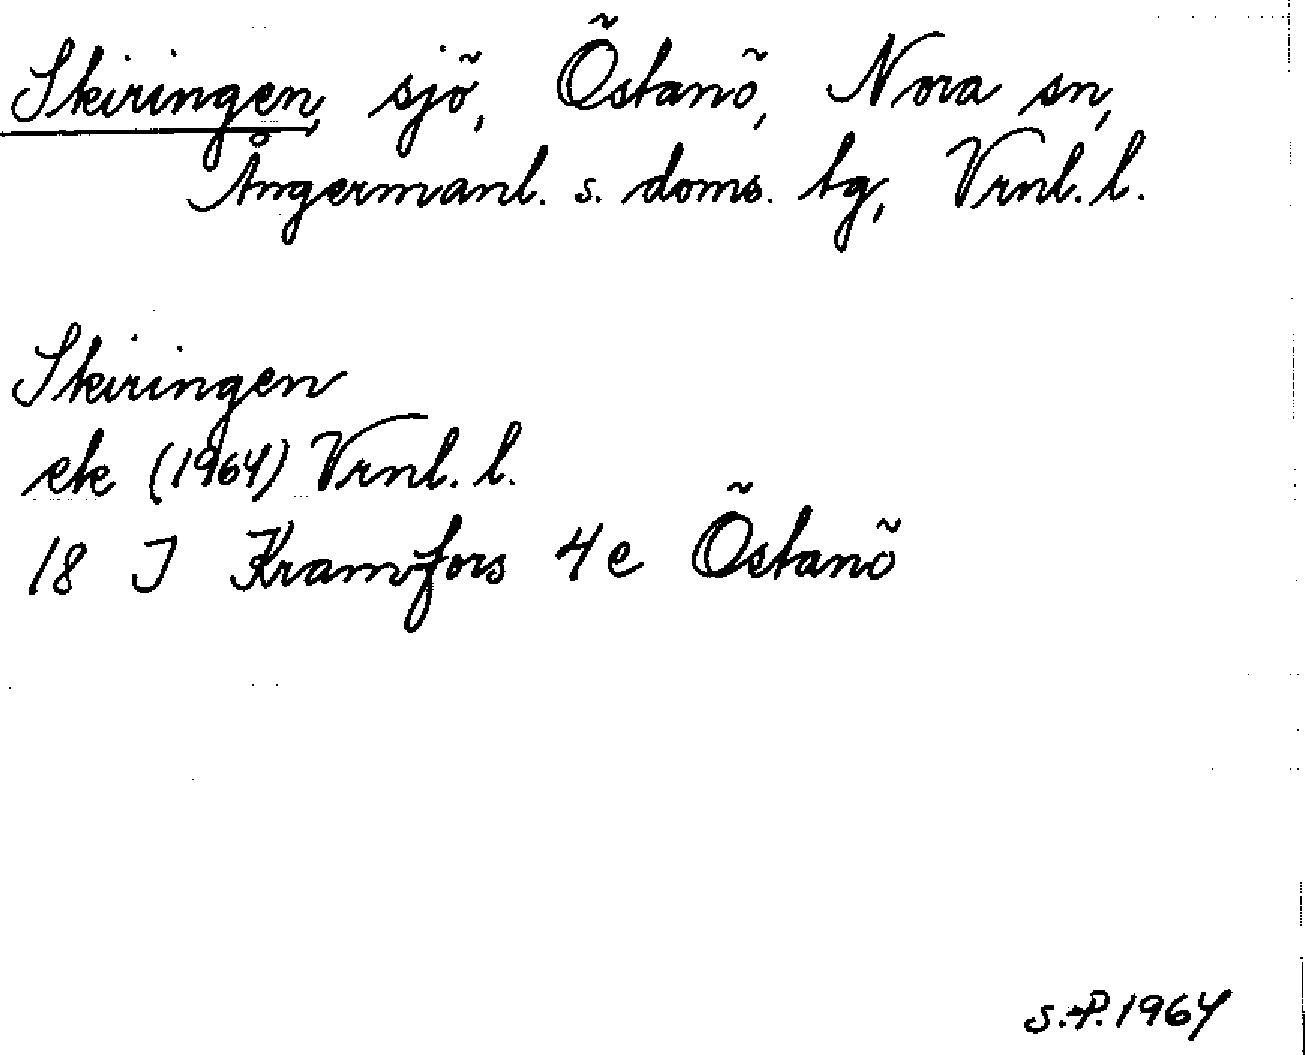 Skiringen, sjö, Östanö, Nora sn,
Ångermanl. s. doms. tg, Vrnl. l.
Skiringen
ek (1964) Vrnl. l.
18 J Kramfors 4e Östanö
S.P. 1964